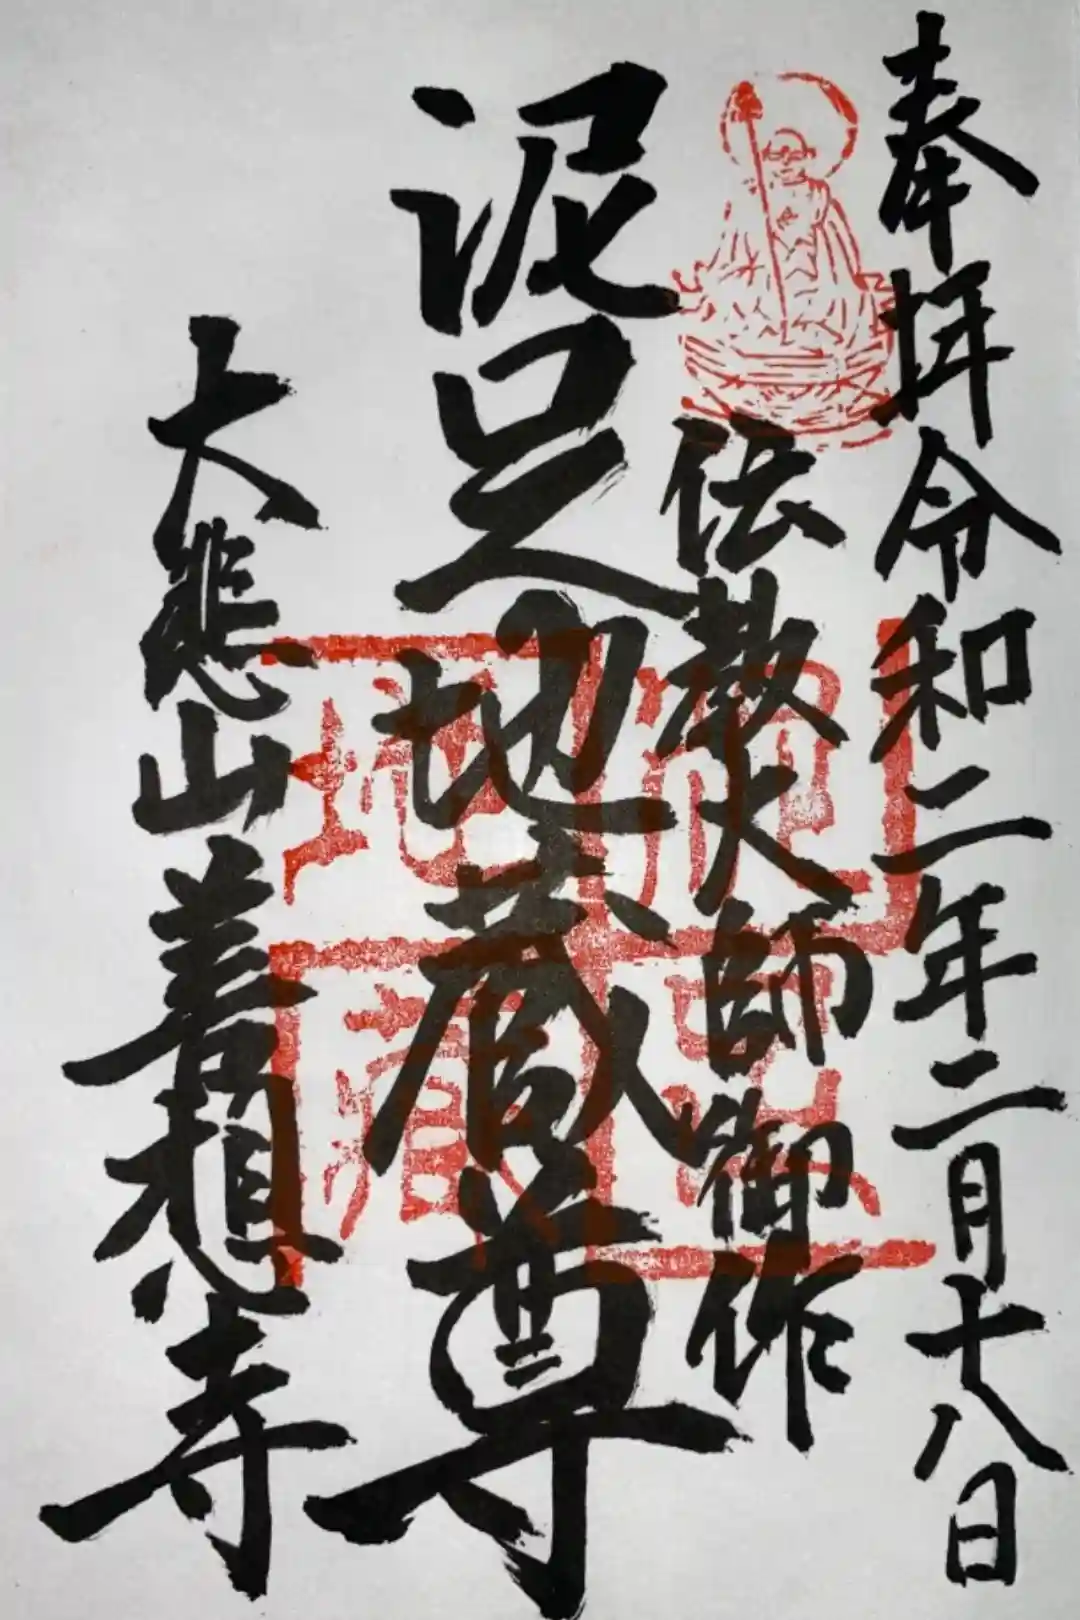 奉拝令和二年二月十八日
伝教大師御作
泥足地蔵尊
大悲山善想寺
泥足地蔵